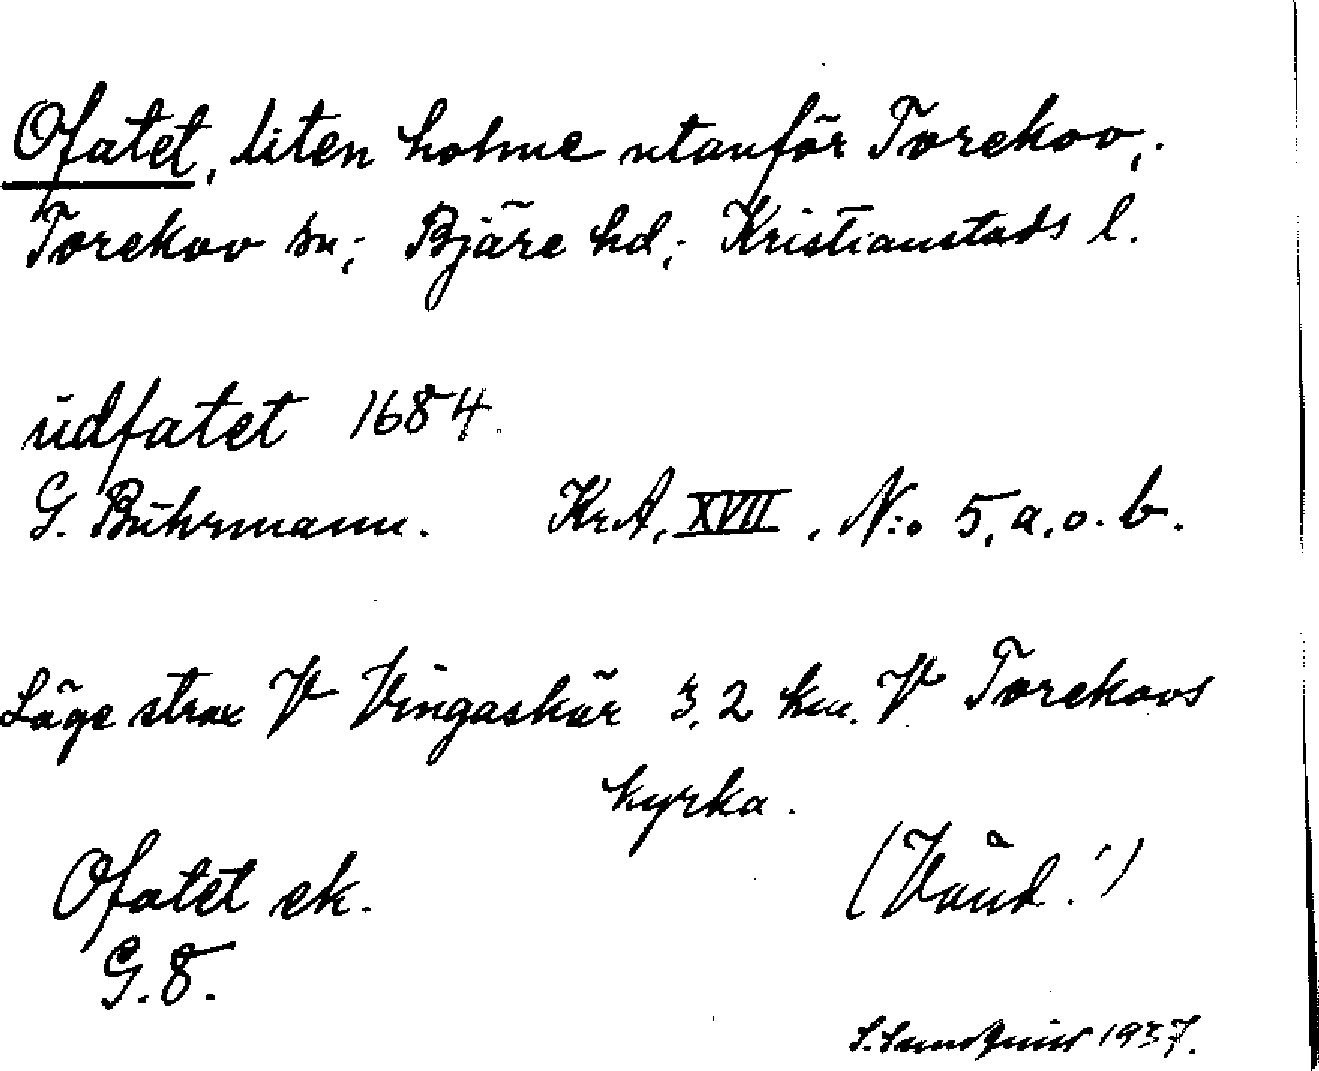 Ofatet, liten holme utanför Torekov,.
Torekov sn; Bjäre hd; Kristianstads l.
údfatet 1684.
G. Buhrmann. Kr.A, XVII, N:o 5, a.o.b.
Läge strax V Vingaskär 3,2 km. V Torekovs
kyrka.
Ofatet ek.
(Vänd!)
G.8.
S. Sundquist 1937.